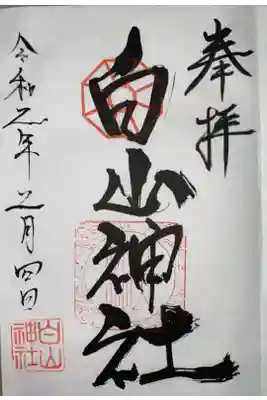 奉拝
白山神社
令和元年七月四日
白山
神社